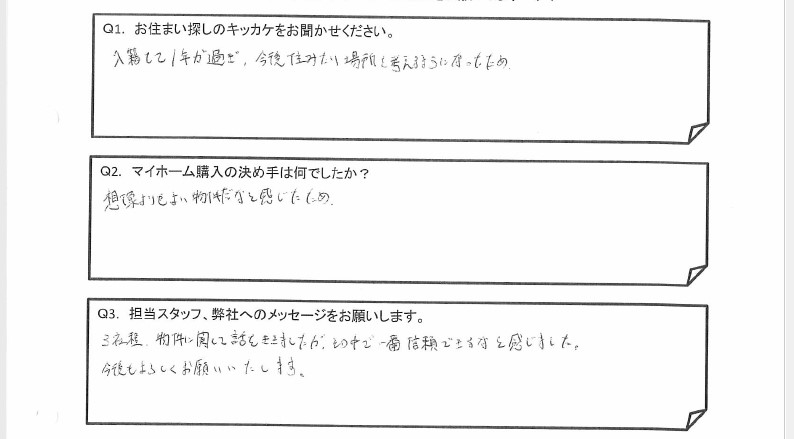 Q1. お住まい探しのキッカケをお聞かせください。
入籍して1年が過ぎ、今後住みたい場所を考えるようになったため。
Q2. マイホーム購入の決め手は何でしたか？
想像よりもよい物件だなと感じたため。
Q3. 担当スタッフ、弊社へのメッセージをお願いします。
三社程、物件に関して話をききましたが、その中で一番信頼できるなと感じました。
今後もよろしくお願いいたします。